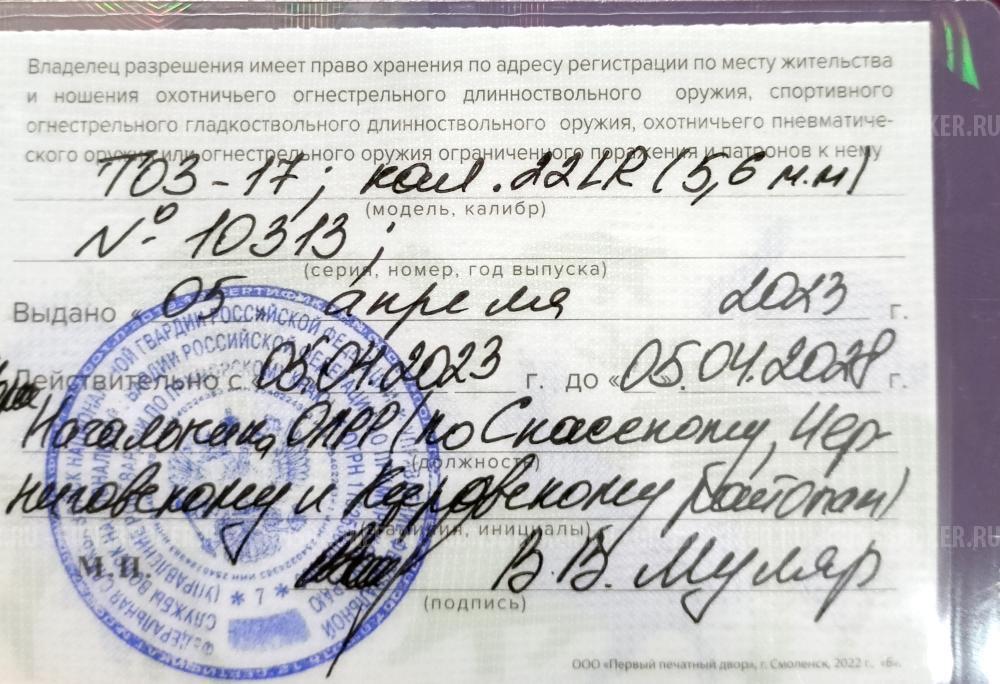 Владелец разрешения имеет право хранения по адресу регистрации по месту жительства
и ношения охотничьего огнестрельного длинноствольного оружия, спортивного
огнестрельного гладкоствольного длинноствольного оружия, охотничьего пневматиче-
ского оружия или огнестрельного оружия ограниченного поражения и патронов к нему
ТОЗ-17; кал .22LR (5,6 м.м)
(модель, калибр)
№ 10313;
(серия, номер, год выпуска)
Выдано « 05 » апреля 2023 г.
Действительно с 05.04.2023 г. до « 05.04.2028 г.
Начальника ОЛРР (по Спасскому, Чер-
(должность)
ниговскому и Кировскому районам)
(фамилия, инициалы)
М.П. В.В. Муляр
(подпись)
ООО «Первый печатный двор», г. Смоленск, 2022 г., «Б».